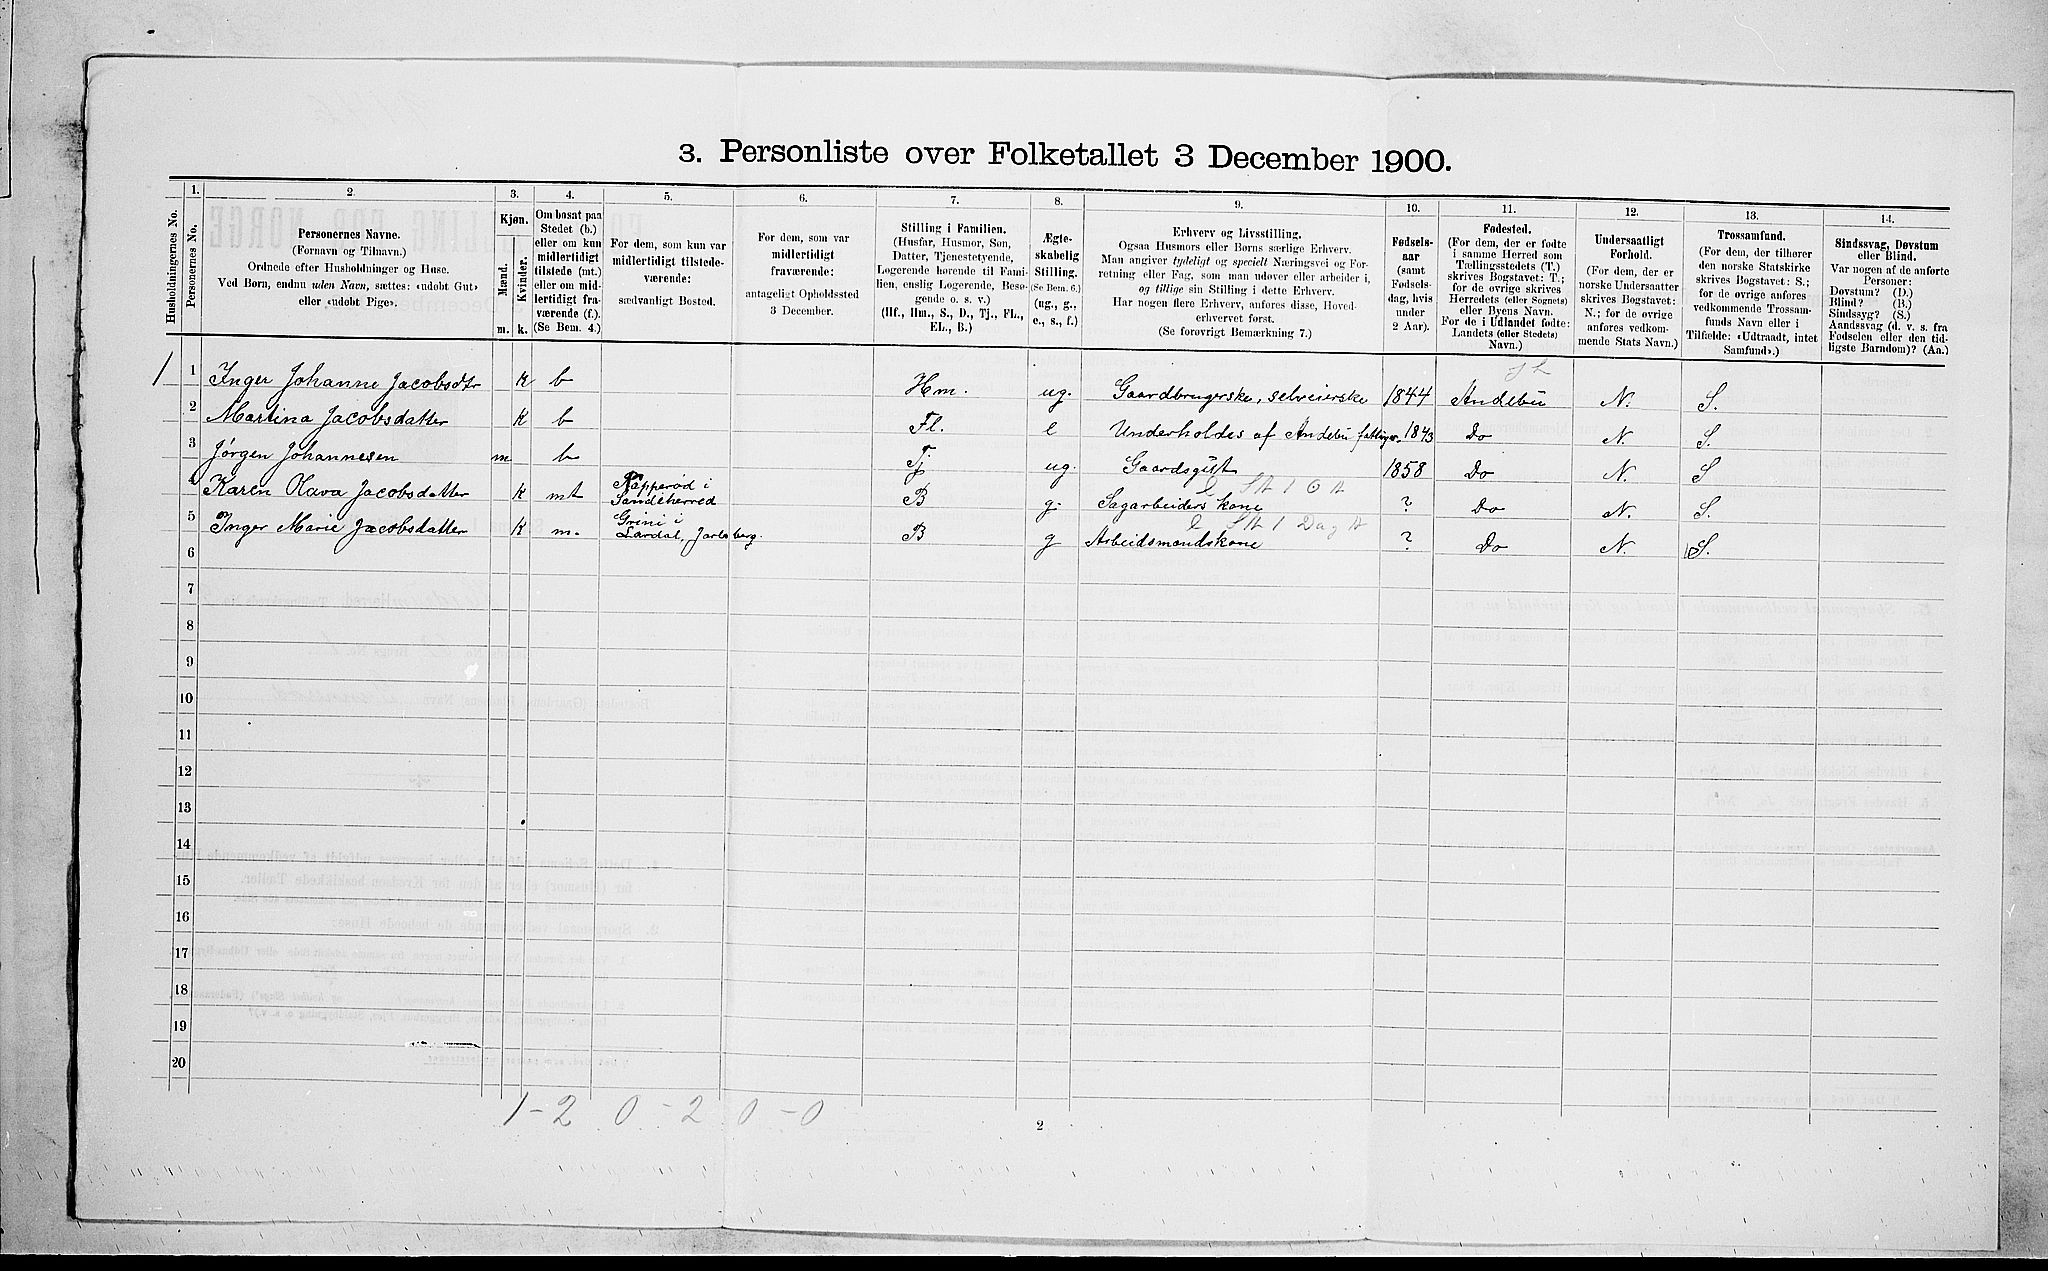 3. Personliste over Folketallet 3 December 1900.
1. 2. 3. 4. 5. 6. 7. 8. 9. 10. 11. 12. 13. 14.
Husholdningernes No.
Personernes No.
Personernes Navne.
(Fornavn og Tilnavn.)
Ordnede efter Husholdninger og Huse.
Ved Børn, endnu uden Navn, sættes: «udøbt Gut»
eller «udøbt Pige».
Kjøn.
Mænd. Kvinder.
m. k.
Om bosat paa
Stedet (b.)
eller om kun
midlertidigt
tilstede (mt.)
eller om mid-
lertidigt fra-
værende (f.).
(Se Bem. 4.)
For dem, som kun var
midlertidigt tilstede-
værende:
sædvanligt Bosted.
For dem, som var
midlertidigt
fraværende:
antageligt Opholdssted
3 December.
Stilling i Familien.
(Husfar, Husmor, Søn,
Datter, Tjenestetyende,
Logerende hørende til Fami-
lien, enslig Logerende, Besø-
gende o. s. v.)
(Hf., Hm., S., D., Tj., FL.,
EL., B.)
Ægte-
skabelig
Stilling.
(Se Bem. 6.)
(ug., g.,
e., s., f.)
Erhverv og Livsstilling.
Ogsaa Husmors eller Børns særlige Erhverv.
Man angiver tydeligt og specielt Næringsvei og For-
retning eller Fag, som man udøver eller arbeider i,
og tillige sin Stilling i dette Erhverv.
Har nogen flere Erhverv, anføres disse, Hoved-
erhvervet først.
(Se forøvrigt Bemærkning 7.)
Fødsels-
aar
(samt
Fødsels-
dag, hvis
under
2 Aar).
Fødested.
(For dem, der er fødte
i samme Herred som
Tællingsstedets (T.)
skrives Bogstavet: T.;
for de øvrige skrives
Herredets (eller Sognets)
eller Byens Navn.
For de i Udlandet fødte:
Landets (eller Stedets)
Navn.)
Undersaatligt
Forhold.
(For dem, der er
norske Undersaatter
skrives Bogstavet:
N.; for de øvrige
anføres vedkom-
mende Stats Navn.)
Trossamfund.
(For dem, der tilhører
den norske Statskirke
skrives Bogstavet: S.;
for de øvrige anføres
vedkommende Trossam-
funds Navn eller i
Tilfælde: «Udtraadt, intet
Samfund».)
Sindssvag, Døvstum
eller Blind.
Var nogen af de anførte
Personer:
Døvstum? (D.)
Blind? (B.)
Sindssyg? (S.)
Aandssvag (d. v. s. fra
Fødselen eller den tid-
ligste Barndom)? (Aa.)
1 1 Inger Johanne Jacobsdtr K b Hm. ug. Gaardbrugerske, selveierske 1844 Andebu N. S.
2 Martina Jacobsdatter K b Fl. e Underholdes af Andebu fattigv. 1843 Do N. S.
3 Jørgen Johannesen m b Tj ug. Gaardsgut 1858 Do N. S
4 Karen Olava Jacobsdatter K mt Napperød i
Sandeherred B g. Sagarbeiders kone ? Do N. S.
5 Inger Marie Jacobsdatter K m. Greni i
Lardal, Jarlsberg. B g Arbeidsmandskone ? Do N. S.
6
7
8
9
10
11
12
13
14
15
16
17
18
19
20
1 - 2 0 - 2 0 - 0
2